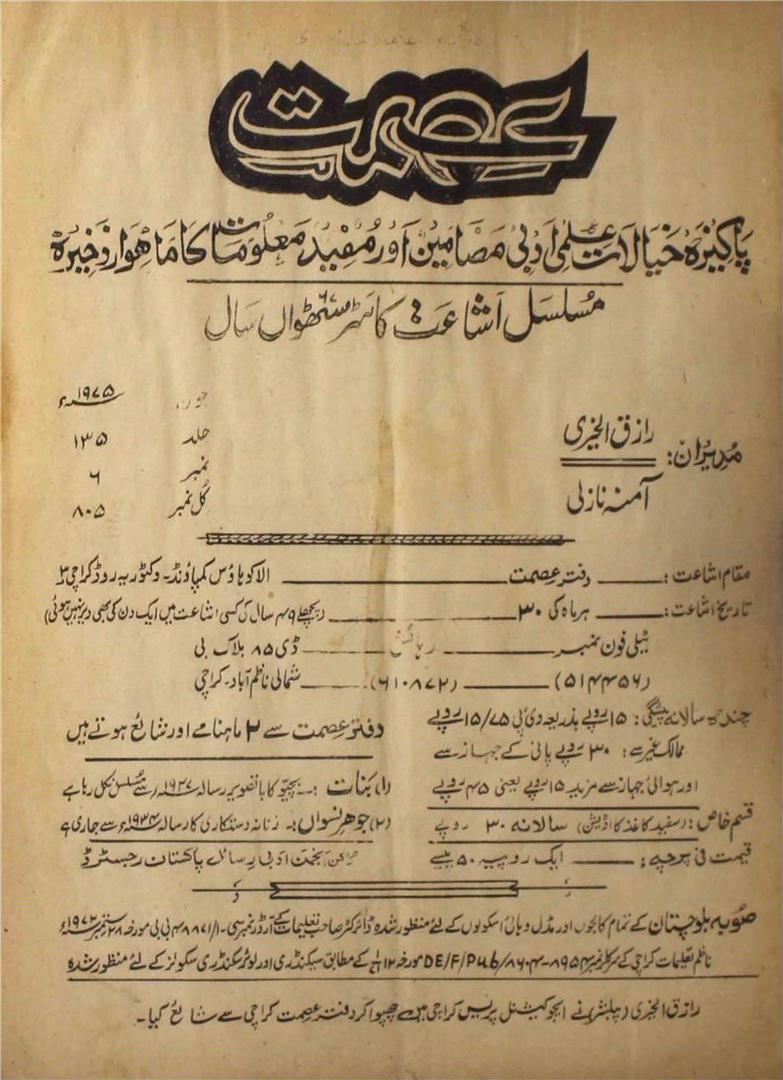 عصمت
پاکیزہ خیالات علمی ادبی مضامین اور مفید معلومات کا ماہوار ذخیرہ
مسلسل اشاعت کا سٹرسٹھواں سال ۶۷
مدیران: رازق الخیری
آمنہ نازلی
جون ۱۹۷۵ء
جلد ۱۳۵
نمبر ۶
کل نمبر ۸۰۵
مقام اشاعت: دفتر عصمت الاکو ہاؤس کمپاؤنڈ۔ وکٹوریہ روڈ کراچی ۳
تاریخ اشاعت: ہر ماہ کی ۳۰ (پچھلے ۴۹ سال کی کسی اشاعت میں ایک دن کی بھی دیر نہیں ہوئی)
ٹیلی فون نمبر رہائش ڈی ۸۵ بلاک بی
(۵۱۴۴۵۶) (۶۱۰۸۷۲) شمالی ناظم آباد۔ کراچی
چندہ سالانہ پیشگی: ۱۵ روپے بذریعہ وی پی ۱۵/۷۵ روپے
ممالک غیر سے: ۳۰ روپے پانی کے جہاز سے
اور ہوائی جہاز سے مزید ۱۵ روپے یعنی ۴۵ روپے
قسم خاص: (سفید کاغذ کا اڈیشن) سالانہ ۳۰ روپے
قیمت فی پرچہ: ایک روپیہ ۵۰ پیسے
دفتر عصمت سے ۲ ماہنامے اور شائع ہوتے ہیں
(۱) بنات :۔ بچیوں کا باتصویر رسالہ ۱۹۳۷ء سے مسلسل نکل رہا ہے
(۲) جوھر نسواں:۔ زنانہ دستکاری کا رسالہ ۱۹۳۴ء سے جاری ہے
انجمن ادبی رسائل پاکستان رجسٹرڈ
صوبہ بلوچستان کے تمام کالجوں اور مڈل و ہائی اسکولوں کے لئے منظور شدہ ڈائرکٹر صاحب تعلیمات کے آرڈر نمبر سی۔ ۴۸۸۷۱/۱ پی بی مورخہ ۲۸ ستمبر ۱۹۷۲ء
ناظم تعلیمات کراچی کے سرکلر نمبر ۸۹۵۴-۸۶۰۴/DE/F/Pub مورخہ ۱۲ کے مطابق سیکنڈری اور لوئر سکنڈری سکولز کے لئے منظور شدہ
رازق الخیری (پبلشر) نے ایجوکیشنل پریس کراچی میں چھپوا کر دفتر عصمت کراچی سے شائع کیا۔